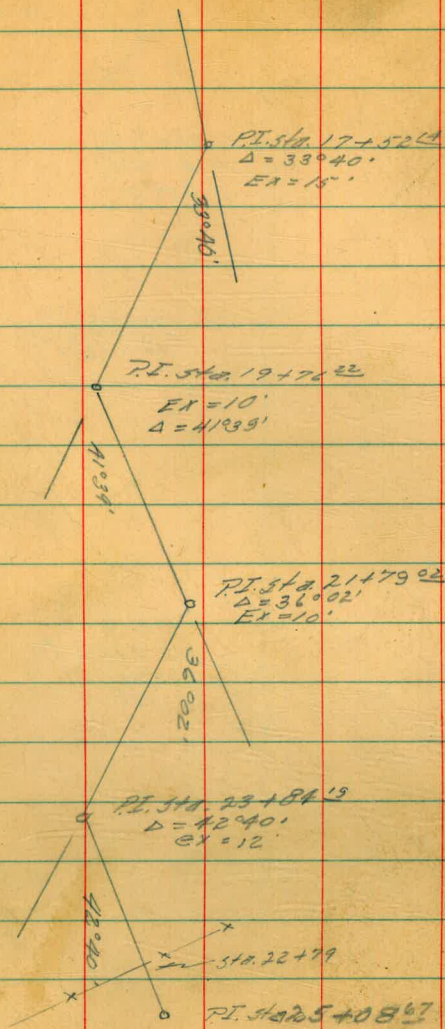 P.I. sta. 17+52 14
Δ = 33°40'
Ex = 15'
33°40'
P.I. sta. 19+76 22
Ex = 10'
Δ = 41°39'
41°39'
P.I. sta. 21+79 02
Δ = 36°02'
Ex = 10'
36°02'
P.I. sta. 23+84 19
Δ = 42°40'
ex = 12'
42°40'
sta. 22+79
P.I. sta 25+08 67